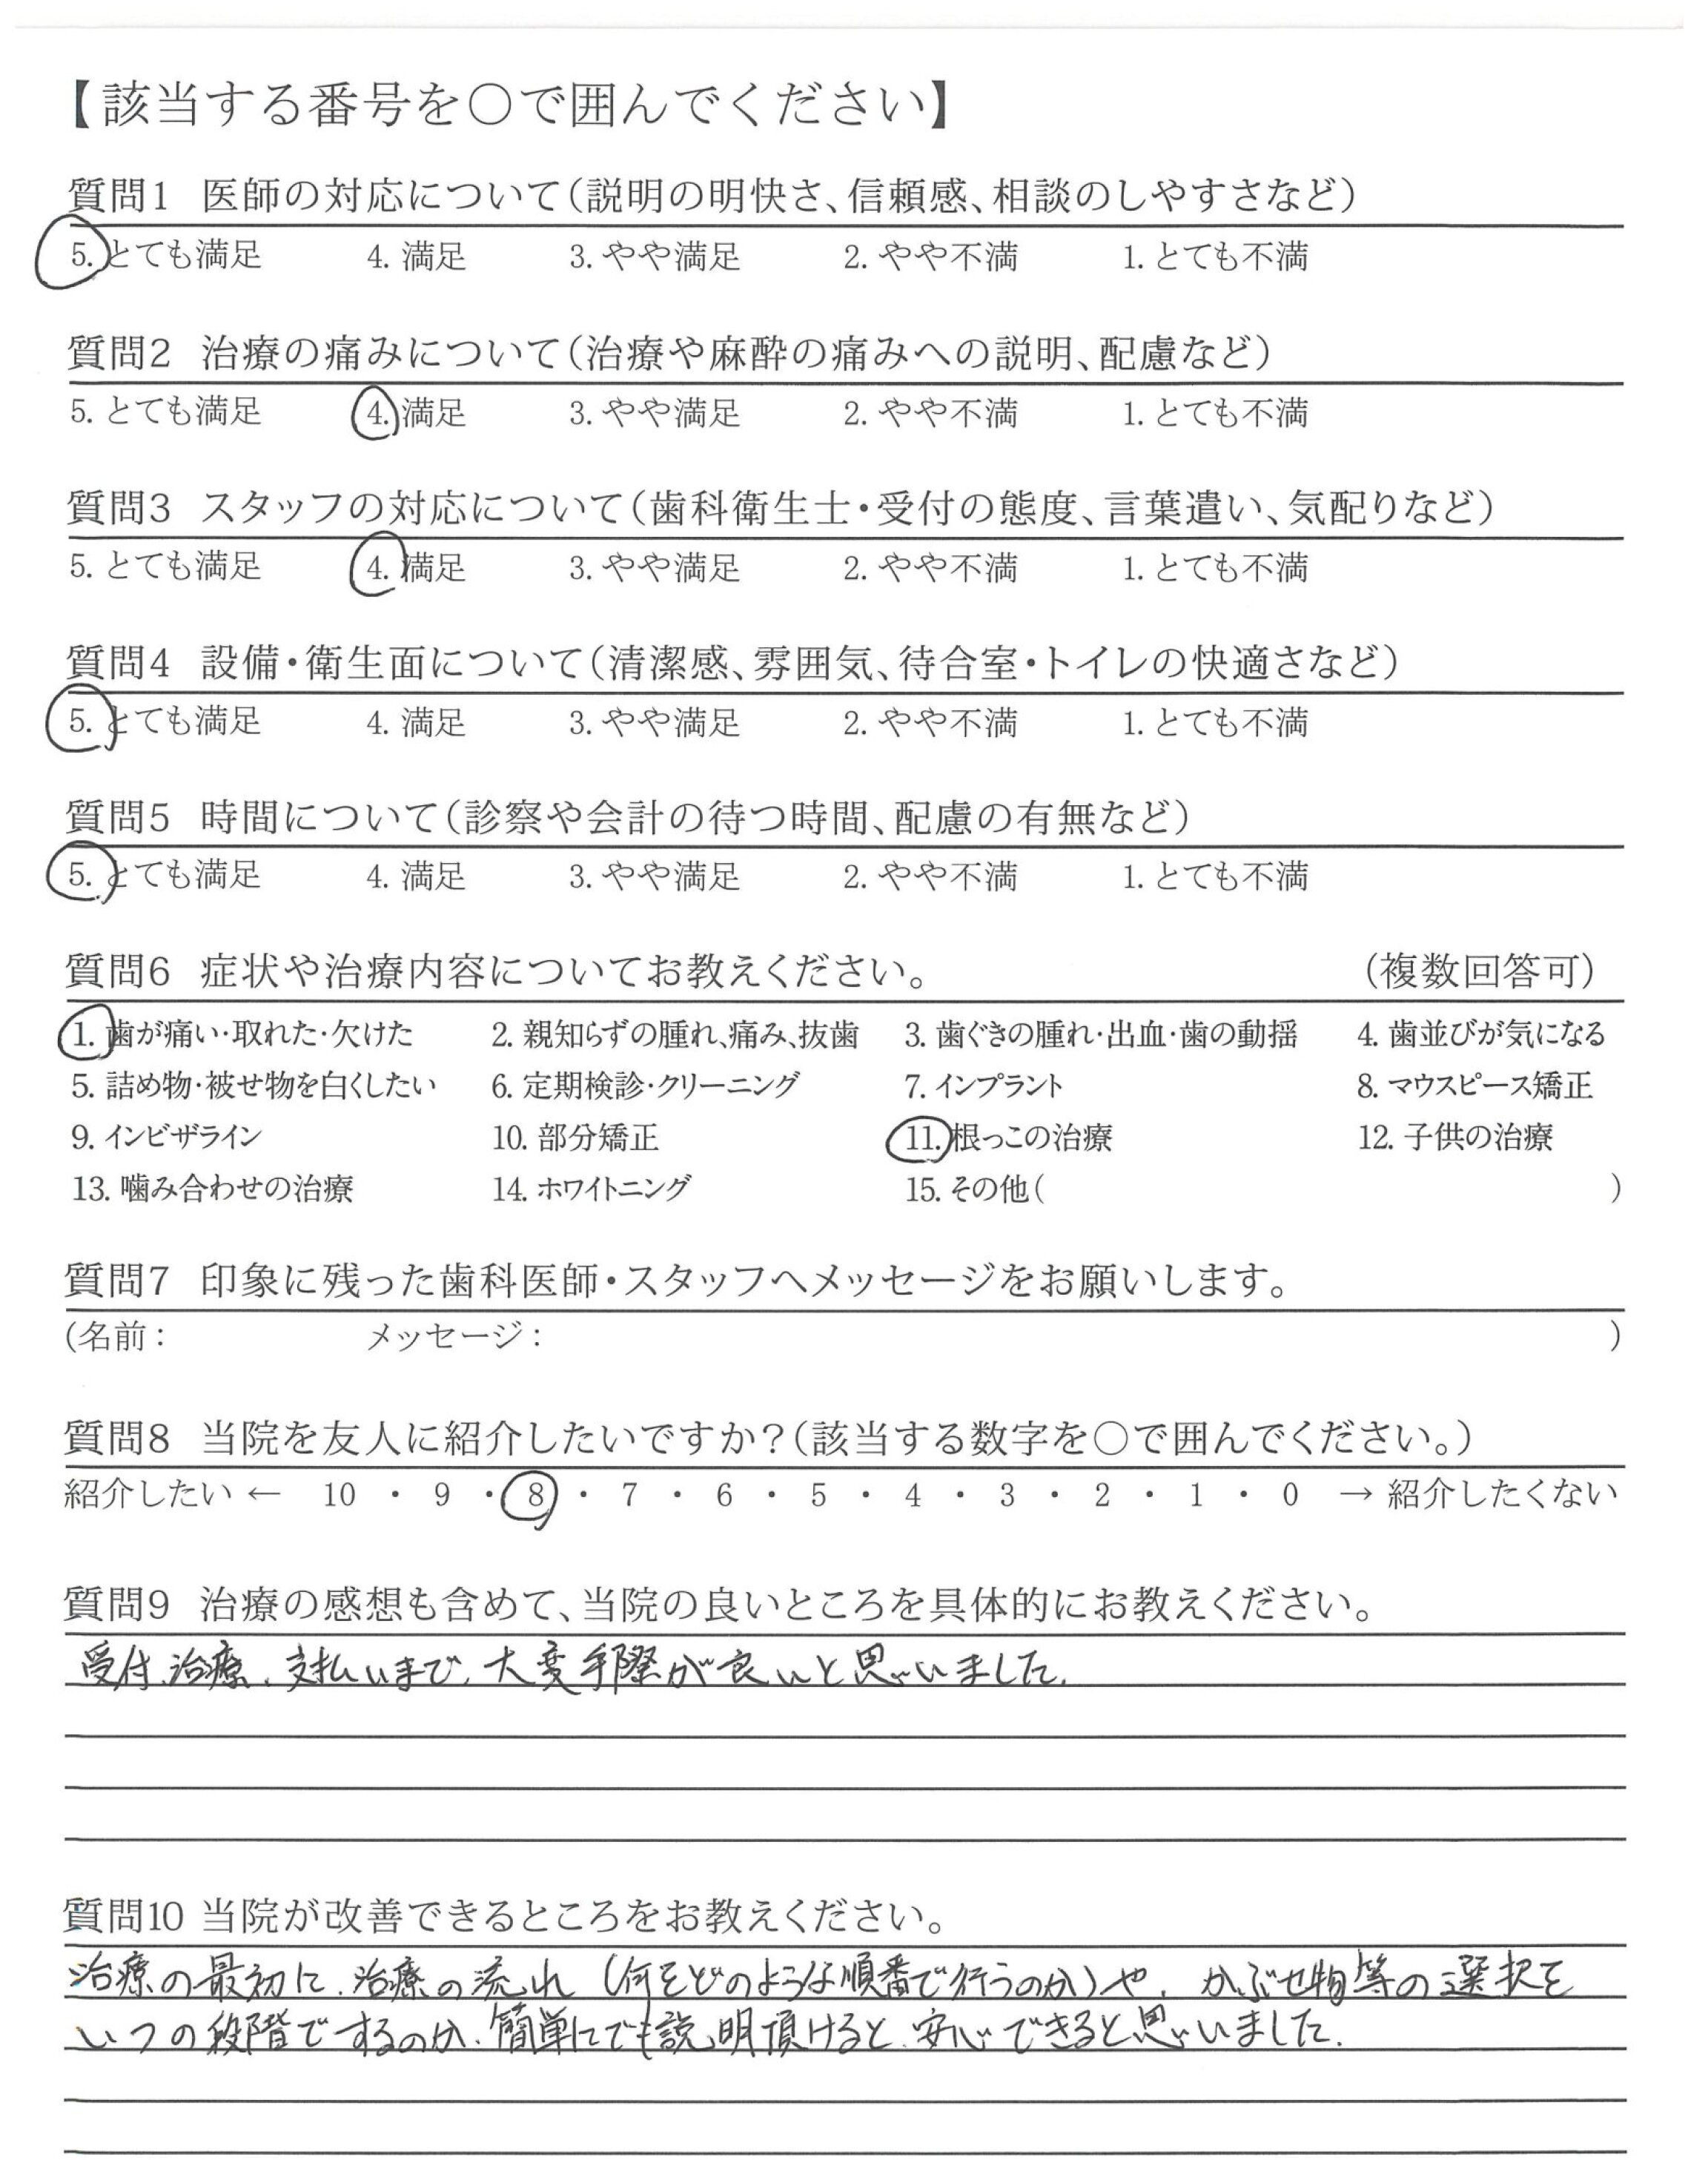 【該当する番号を○で囲んでください】
質問1 医師の対応について（説明の明快さ、信頼感、相談のしやすさなど）
5. とても満足 4. 満足 3. やや満足 2. やや不満 1. とても不満
質問2 治療の痛みについて（治療や麻酔の痛みへの説明、配慮など）
5. とても満足 4. 満足 3. やや満足 2. やや不満 1. とても不満
質問3 スタッフの対応について（歯科衛生士・受付の態度、言葉遣い、気配りなど）
5. とても満足 4. 満足 3. やや満足 2. やや不満 1. とても不満
質問4 設備・衛生面について（清潔感、雰囲気、待合室・トイレの快適さなど）
5. とても満足 4. 満足 3. やや満足 2. やや不満 1. とても不満
質問5 時間について（診察や会計の待つ時間、配慮の有無など）
5. とても満足 4. 満足 3. やや満足 2. やや不満 1. とても不満
質問6 症状や治療内容についてお教えください。 （複数回答可）
1. 歯が痛い・取れた・欠けた 2. 親知らずの腫れ、痛み、抜歯 3. 歯ぐきの腫れ・出血・歯の動揺 4. 歯並びが気になる
5. 詰め物・被せ物を白くしたい 6. 定期検診・クリーニング 7. インプラント 8. マウスピース矯正
9. インビザライン 10. 部分矯正 11. 根っこの治療 12. 子供の治療
13. 噛み合わせの治療 14. ホワイトニング 15. その他（ ）
質問7 印象に残った歯科医師・スタッフへメッセージをお願いします。
（名前： メッセージ： ）
質問8 当院を友人に紹介したいですか？（該当する数字を○で囲んでください。）
紹介したい ← 10 ・ 9 ・ 8 ・ 7 ・ 6 ・ 5 ・ 4 ・ 3 ・ 2 ・ 1 ・ 0 → 紹介したくない
質問9 治療の感想も含めて、当院の良いところを具体的にお教えください。
受付、治療、支払いまで、大変手際が良いと思いました。
質問10 当院が改善できるところをお教えください。
治療の最初に、治療の流れ（何をどのような順番で行うのか）や、かぶせ物等の選択を
いつの段階でするのか、簡単にでも説明頂けると、安心できると思いました。